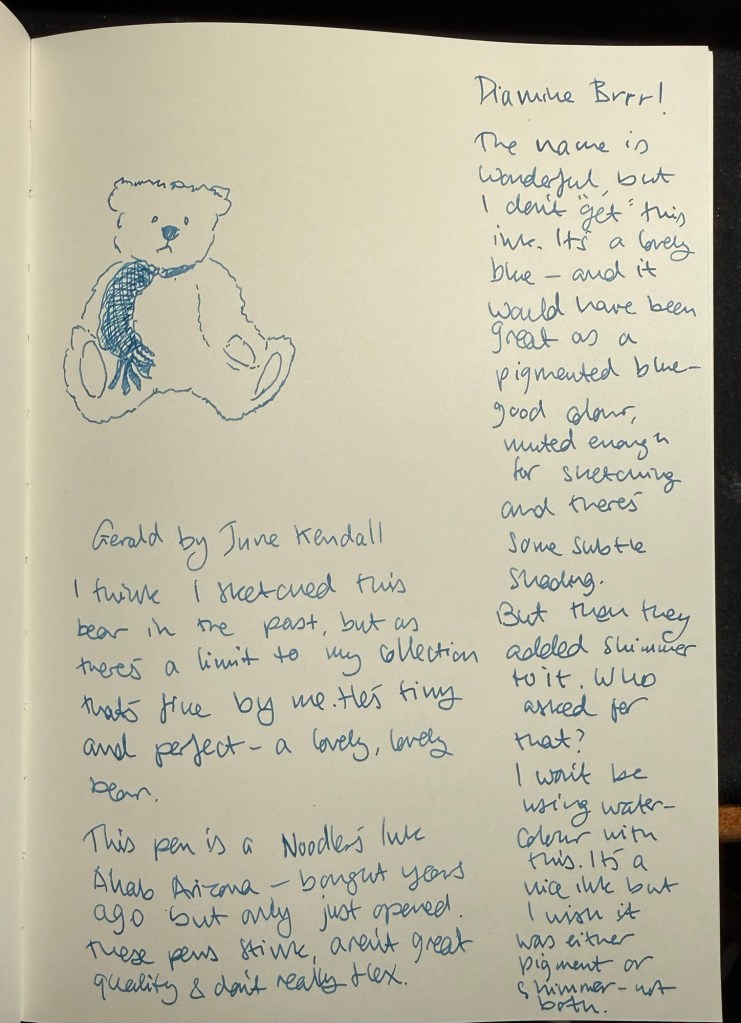 Gerald by June Kendall
I think I sketched this
bear in the past, but as
there's a limit to my collection
that's fine by me. He's tiny
and perfect - a lovely, lovely
bear.
This pen is a Noodler's Ink
Ahab Arizona - bought years
ago but only just opened.
These pens stink, aren't great
quality & don't really flex.
Diamine Brrr!
The name is
wonderful, but
I don't "get" this
ink. It's a lovely
blue - and it
would have been
great as a
pigmented blue -
good colour,
muted enough
for sketching
and there's
some subtle
shading.
But then they
added shimmer
to it. Who
asked for
that?
I won't be
using water-
colour with
this. It's a
nice ink but
I wish it
was either
pigment or
shimmer - not
both.